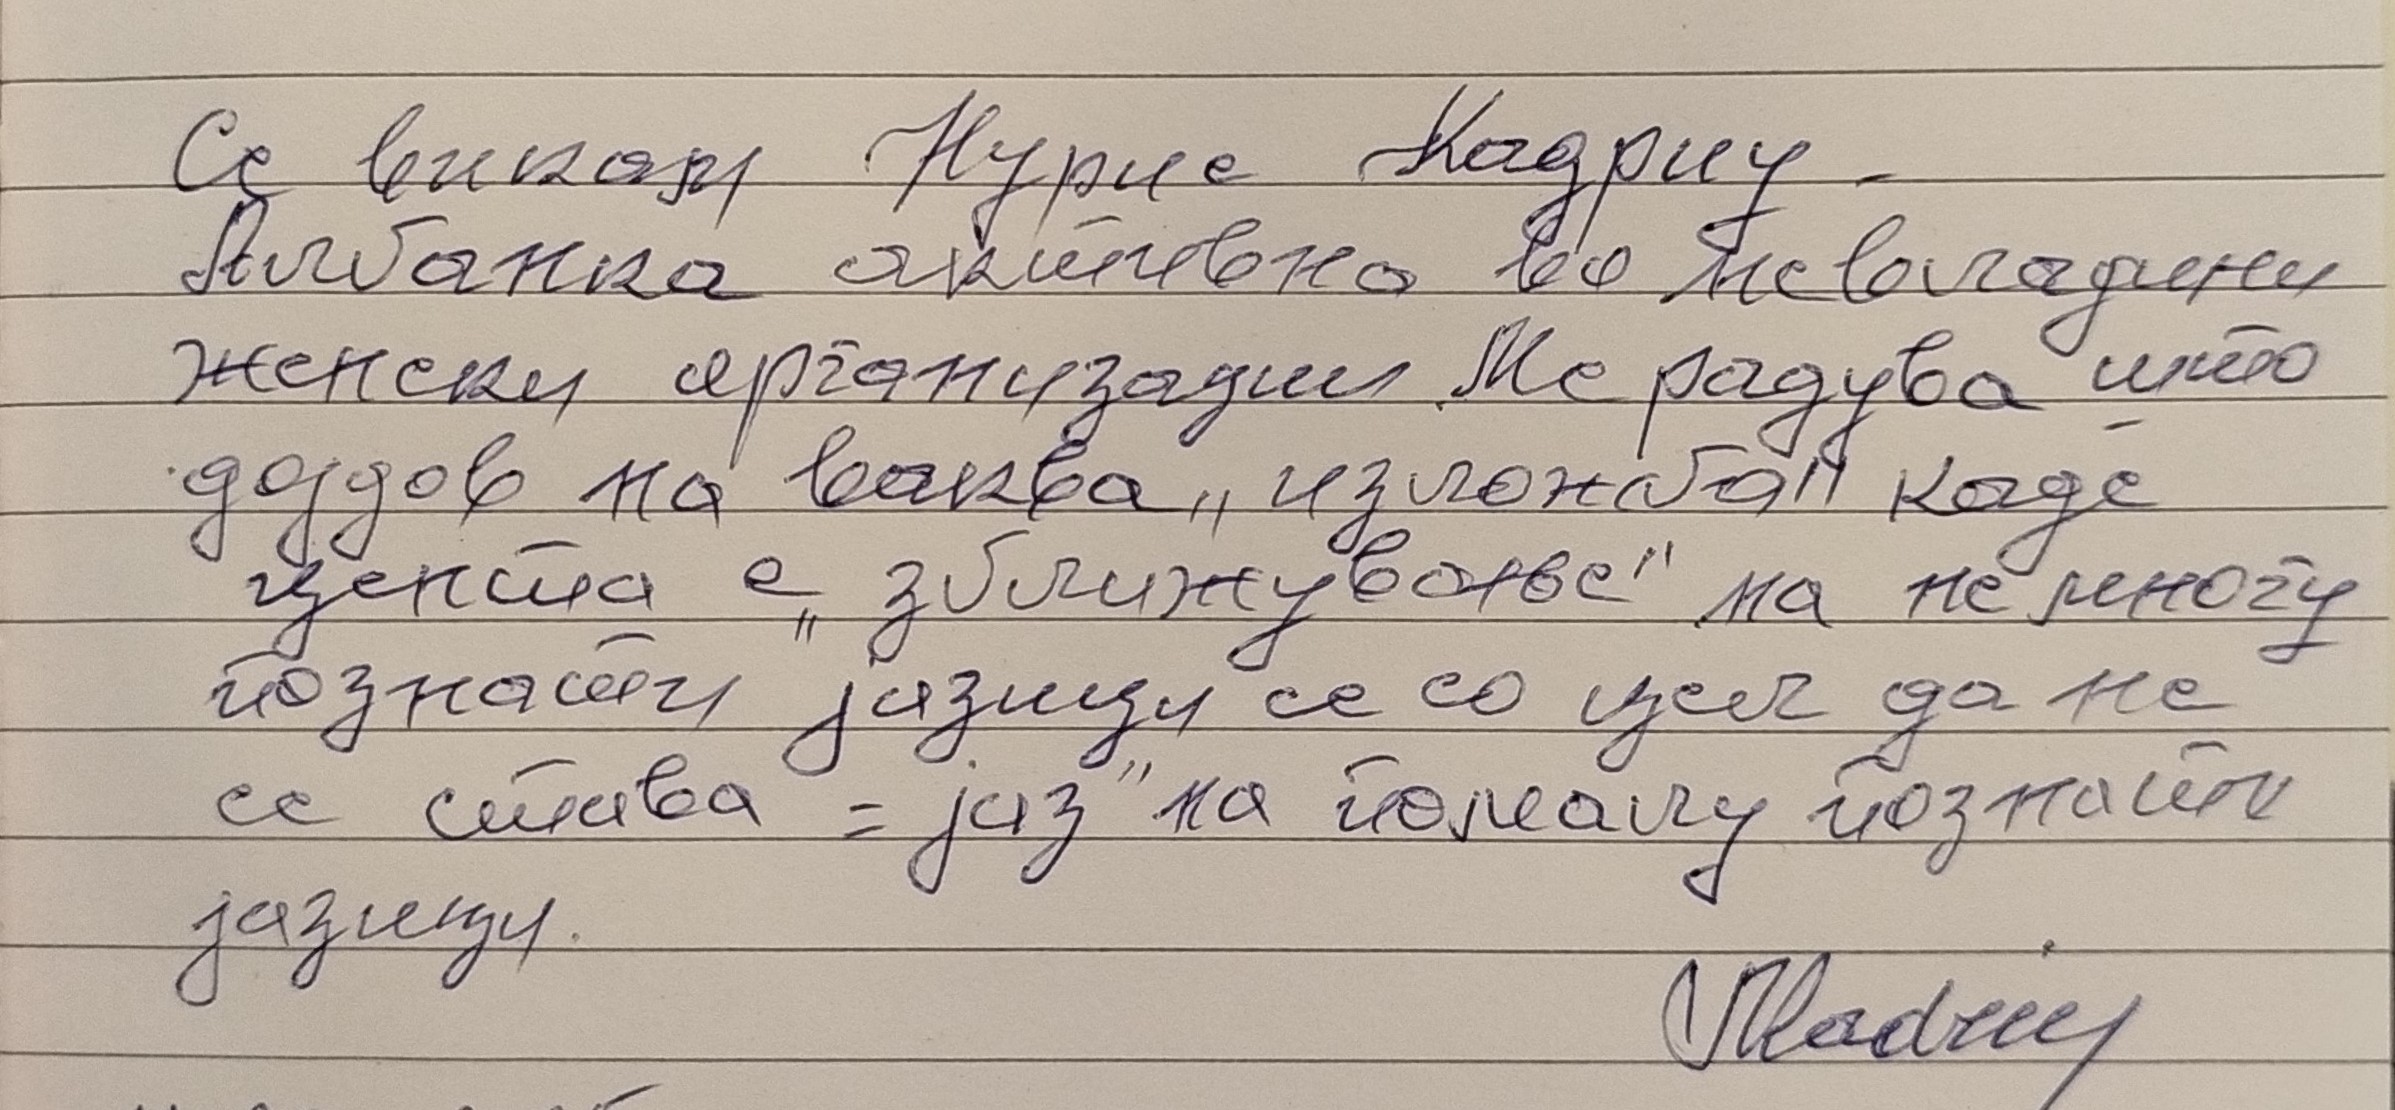 Се викам Нурие Кадриу -
Албанка активно во невладини
женски организации. Ме радува што
дојдов на ваква „изложба" каде
цента е „зближување" на не многу
познати јазици се со цел да не
се става = јаз" на помалу познати
јазици.
NKadriu